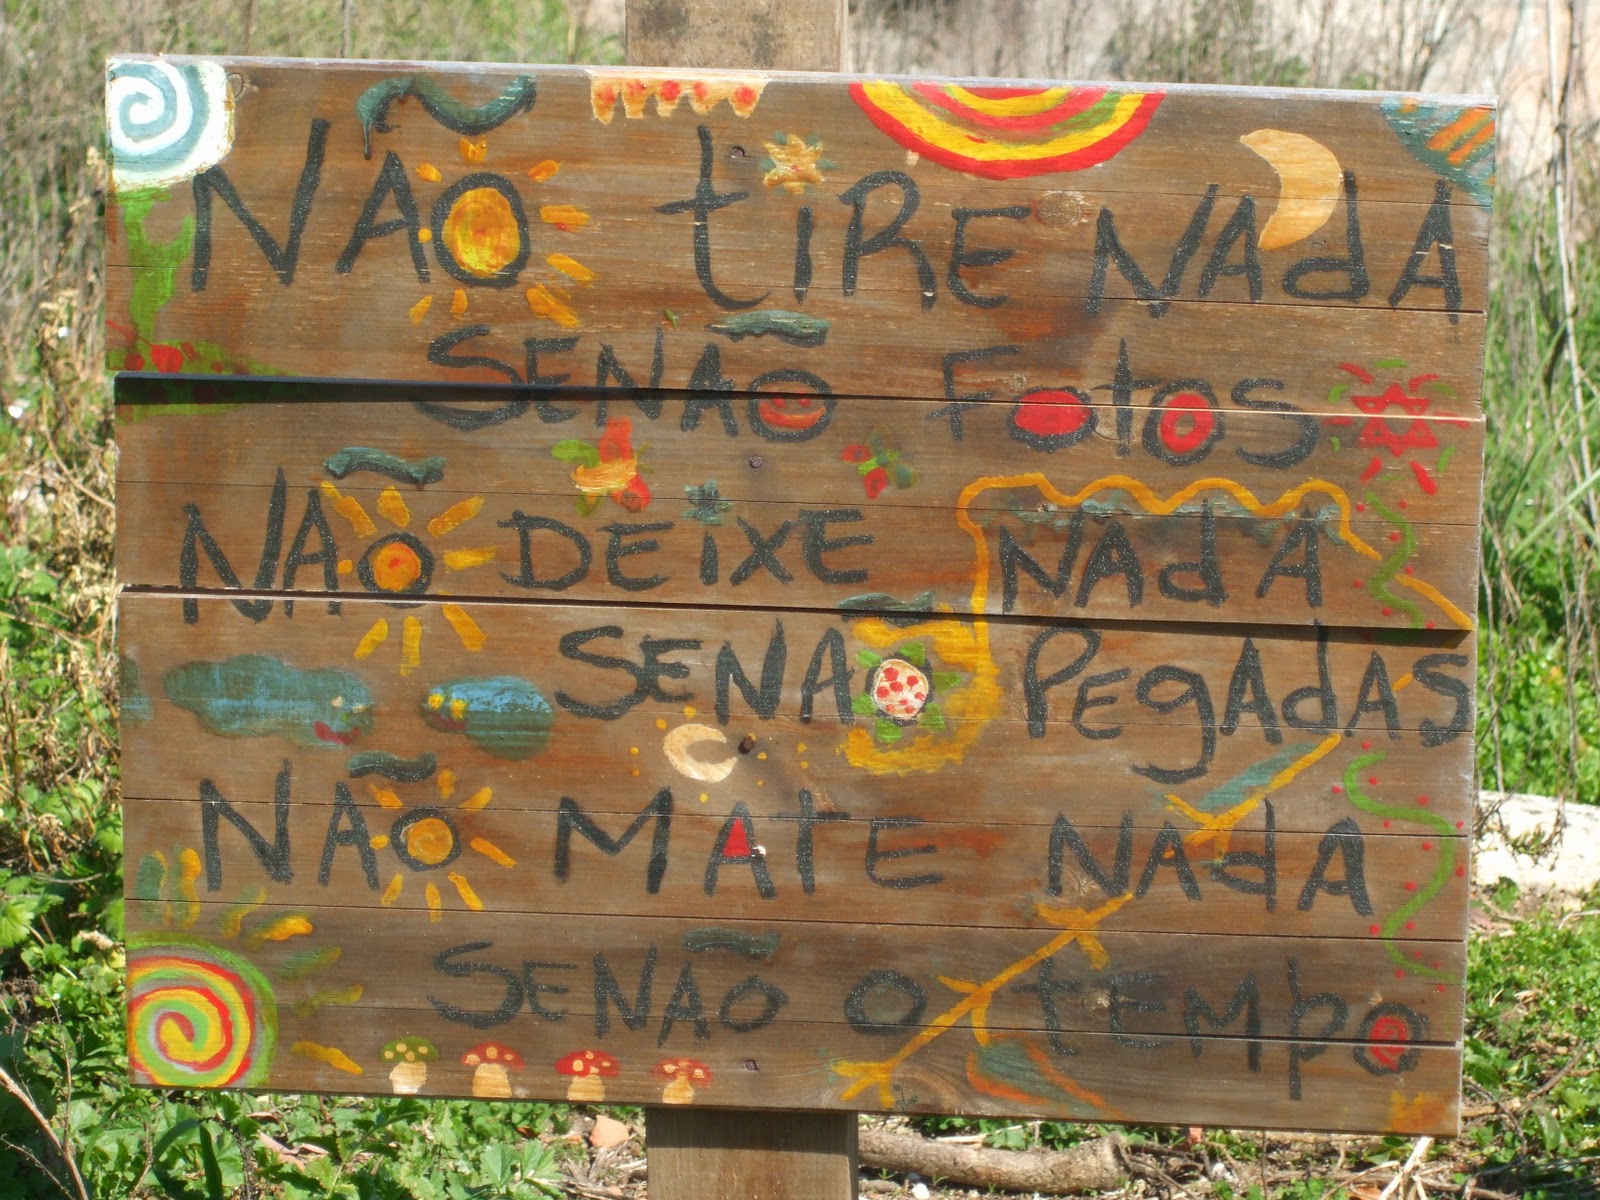 NÃO tiRE NAdA
SENÃO FOtOS
NÃO DEiXE NAdA
SENÃO PEgAdAS
NÃO MAtE NAdA
SENÃO O tEMpO